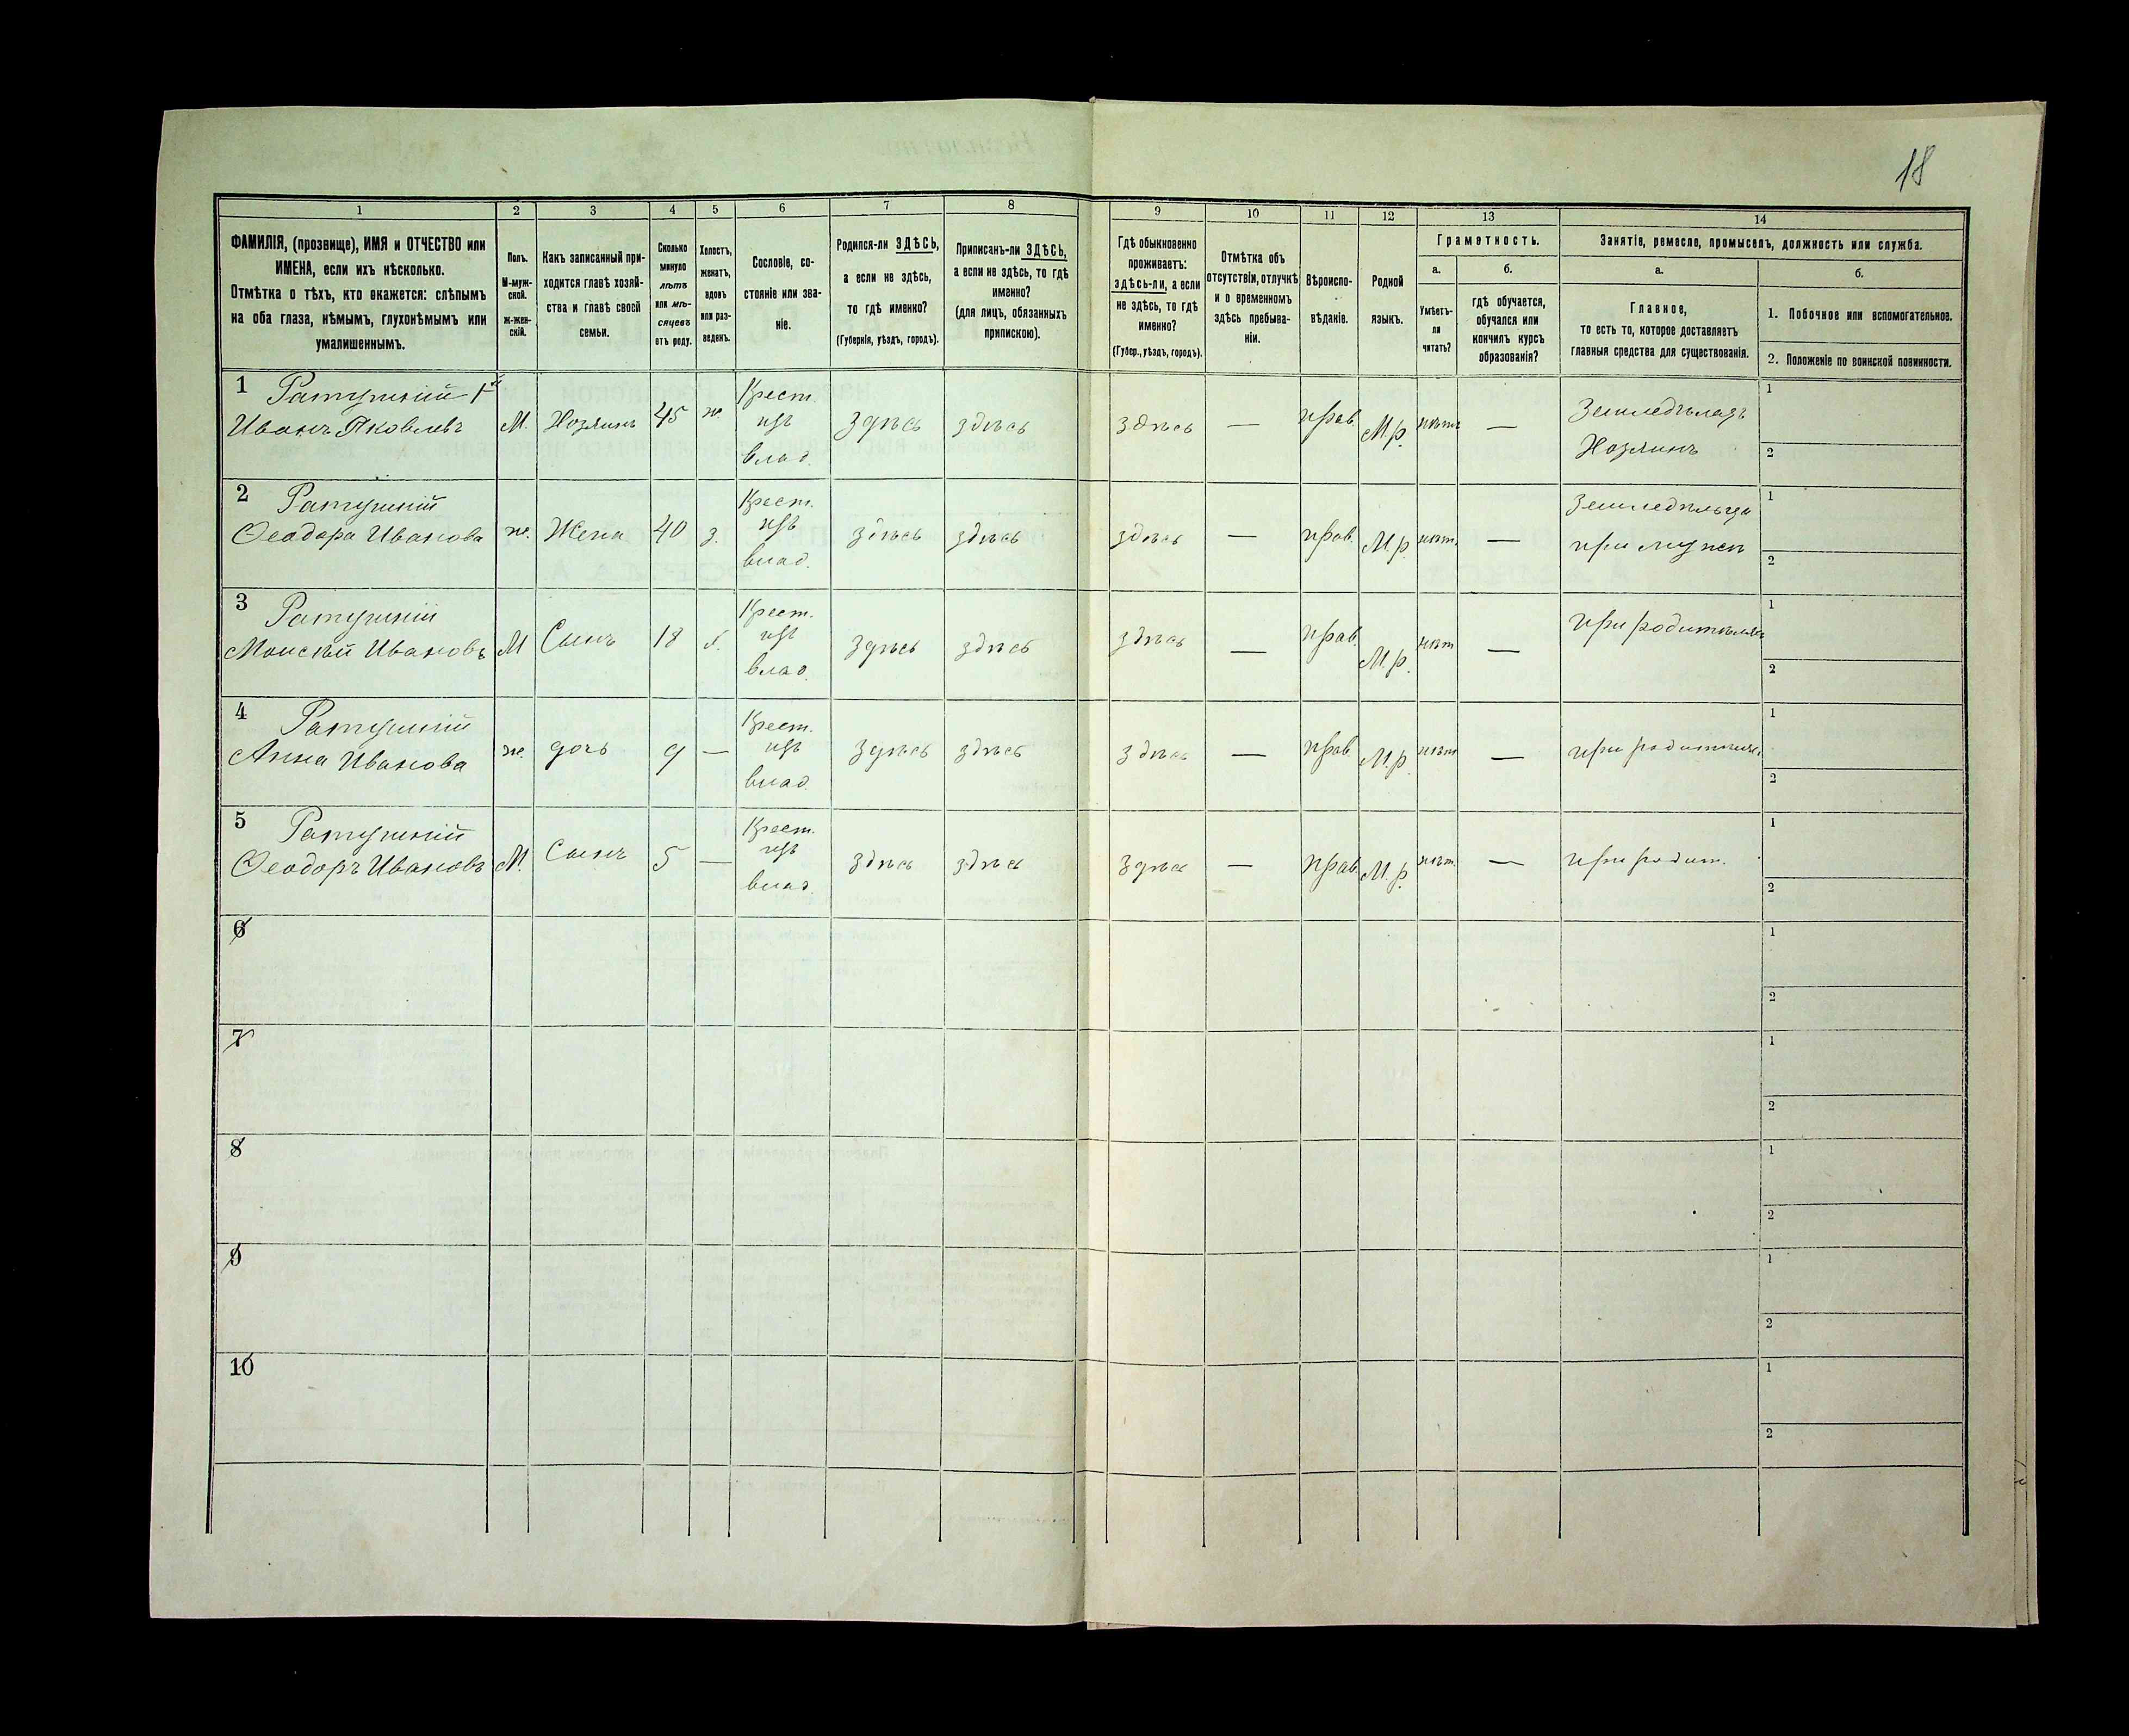 18
1 2 3 4 5 6 7 8 9 10 11 12 13 14
ФАМИЛІЯ, (прозвище), ИМЯ и ОТЧЕСТВО или
ИМЕНА, если ихъ нѣсколько.
Отмѣтка о тѣхъ, кто окажется: слѣпымъ
на оба глаза, нѣмымъ, глухонѣмымъ или
умалишеннымъ.
Полъ.
М-муж-
ской.
Ж-жен-
скій.
Какъ записанный при-
ходится главѣ хозяй-
ства и главѣ своей
семьи.
Сколько
минуло
лѣтъ
или мѣ-
сяцевъ
отъ роду.
Холостъ,
женатъ,
вдовъ
или раз-
веденъ.
Сословіе, со-
стояніе или зва-
ніе.
Родился-ли ЗДѢСЬ,
а если не здѣсь,
то гдѣ именно?
(Губернія, уѣздъ, городъ).
Приписанъ-ли ЗДѢСЬ,
а если не здѣсь, то гдѣ
именно?
(для лицъ, обязанныхъ
припискою).
Гдѣ обыкновенно
проживаетъ:
здѣсь-ли, а если
не здѣсь, то гдѣ
именно?
(Губер., уѣздъ, городъ).
Отмѣтка объ
отсутствіи, отлучкѣ
и о временномъ
здѣсь пребыва-
ніи.
Вѣроиспо-
вѣданіе.
Родной
языкъ.
Грамотность.
а.
Умѣетъ-
ли
читать?
б.
гдѣ обучается,
обучался или
кончилъ курсъ
образованія?
Занятіе, ремесло, промыселъ, должность или служба.
а.
Главное,
то есть то, которое доставляетъ
главныя средства для существованія.
б.
1. Побочное или вспомогательное.
2. Положеніе по воинской повинности.
1
Иванъ Яковлевъ М. Хозяинъ 45 ж Крест. изъ влад. здѣсь здѣсь здѣсь — прав. М.р. нѣтъ —
Хозяинъ
1
2
2
Ѳеодора Иванова ж. Жена 40 з. Крест. изъ влад. здѣсь здѣсь здѣсь — прав. М.р. нѣт. —
при мужѣ
1
2
3
Моисей Ивановъ М Сынъ 18 х. Крест. изъ влад. здѣсь здѣсь здѣсь — прав. М.р. нѣт —
1
2
4
Анна Иванова ж. дочь 9 — Крест. изъ влад. здѣсь здѣсь здѣсь — прав. М.р. нѣт —
1
2
5
Ѳеодоръ Ивановъ М. Сынъ 5 — Крест. изъ влад. здѣсь здѣсь здѣсь — прав. М.р. нѣт. — при родит.
1
2
6
1
2
7
1
2
8
1
2
9
1
2
10
1
2